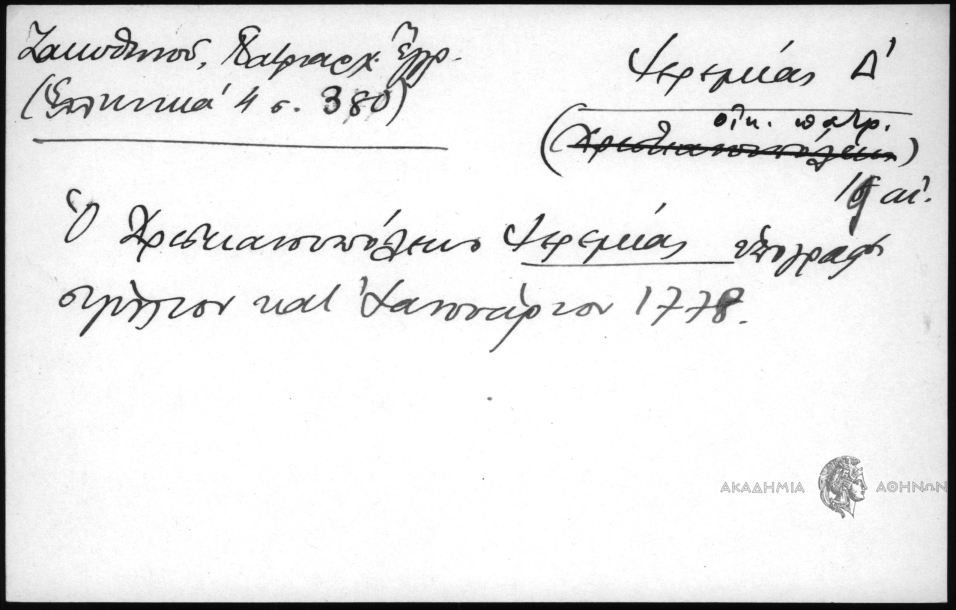 Ζακυθηνοῦ, Πατριαρχ. Ἔγγρ.
(Ἑλληνικά 4 σ. 380)
Ἱερεμίας Δ'
οἰκ. πατρ.
(Χριστιανουπόλεως)
19 αἰ.
Ὁ Χριστιανουπόλεως Ἱερεμίας ὑπογράφει
σιγίλλιον κατ' Ἰαννουάριον 1778.
ΑΚΑΔΗΜΙΑ ΑΘΗΝΩΝ